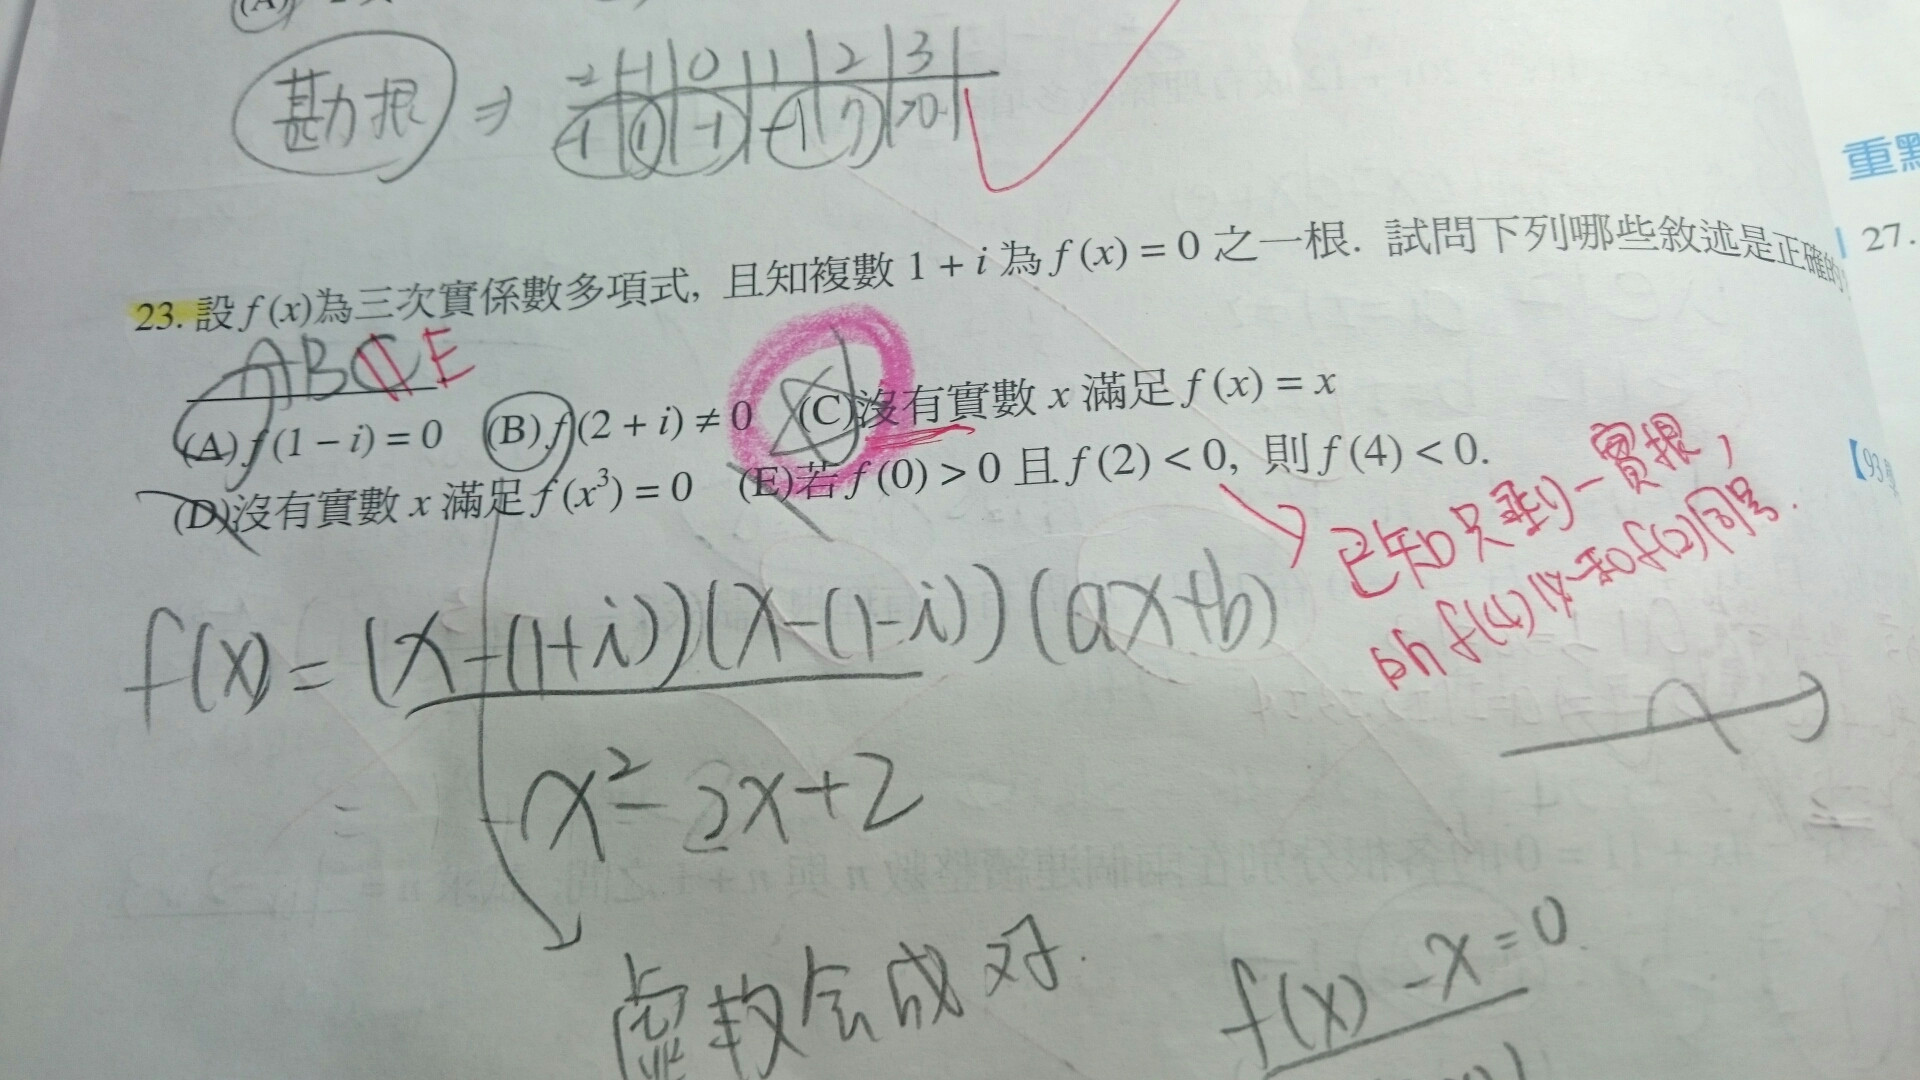 (A)
勘根 ⇒ -2 | -1 | 0 | 1 | 2 | 3
-1 | 1 | -1 | -1 | 7 | >0
重點
23. 設 f(x)為三次實係數多項式, 且知複數 1 + i 為 f(x) = 0 之一根. 試問下列哪些敘述是正確的
27.
ABC E
(A) f(1 − i) = 0 (B) f(2 + i) ≠ 0 (C)沒有實數 x 滿足 f(x) = x
(D)沒有實數 x 滿足 f(x³) = 0 (E)若 f(0) > 0 且 f(2) < 0, 則 f(4) < 0.
【93
已知只剩一實根,
所 f(4) 必和 f(2) 同号.
f(x) = (x-(1+i))(x-(1-i))(ax+b)
x² - 2x + 2
=
虛數会成对.
f(x) - x = 0.